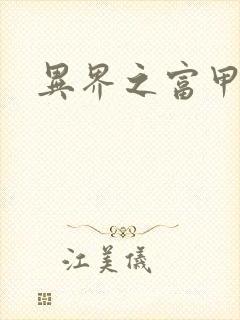 異界之富甲
江美儀